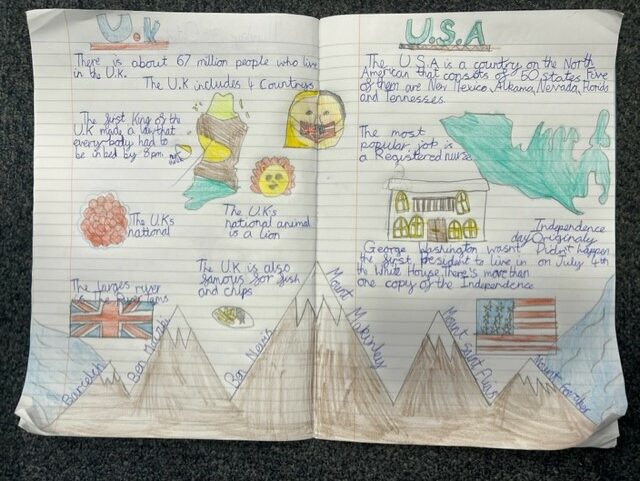 U.K
There is about 67 million people who live
in the U.K.
The U.K includes 4 Countrys
The first King of the
U.K made a law that
every body had to
be in bed by 8 pm.
The U.K's
national
The U.K's
national animal
is a lion
The U.K is also
famous for fish
and chips
The larges river
is the River Tems
Ben Macdui
Ben Nevis
U.S.A
The U S A is a country on the North
American that consists of 50 states. Five
of them are New Mexico, Alkama, Nevada, Florida
and Tennessee.
The most
popular job is
a Registered nurse
Independence
day Originaly
Didn't happen
on July 4th
George Washington wasn't
the first president to live in
the White House. There's more than
one copy of the Independence
Mount
Mount
Mount